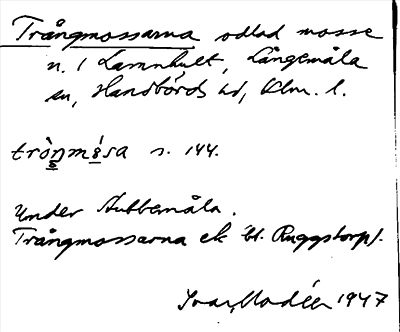 Trångmossarna odlad mosse
n. / Lamnhult, Långemåla
sn, Handbörds hd, Klm. l.
tròŋmósa s. 144.
Under Stubbemåla.
Trångmossarna ek bl. Ruggstorp/.
Ivar Modéer 1947